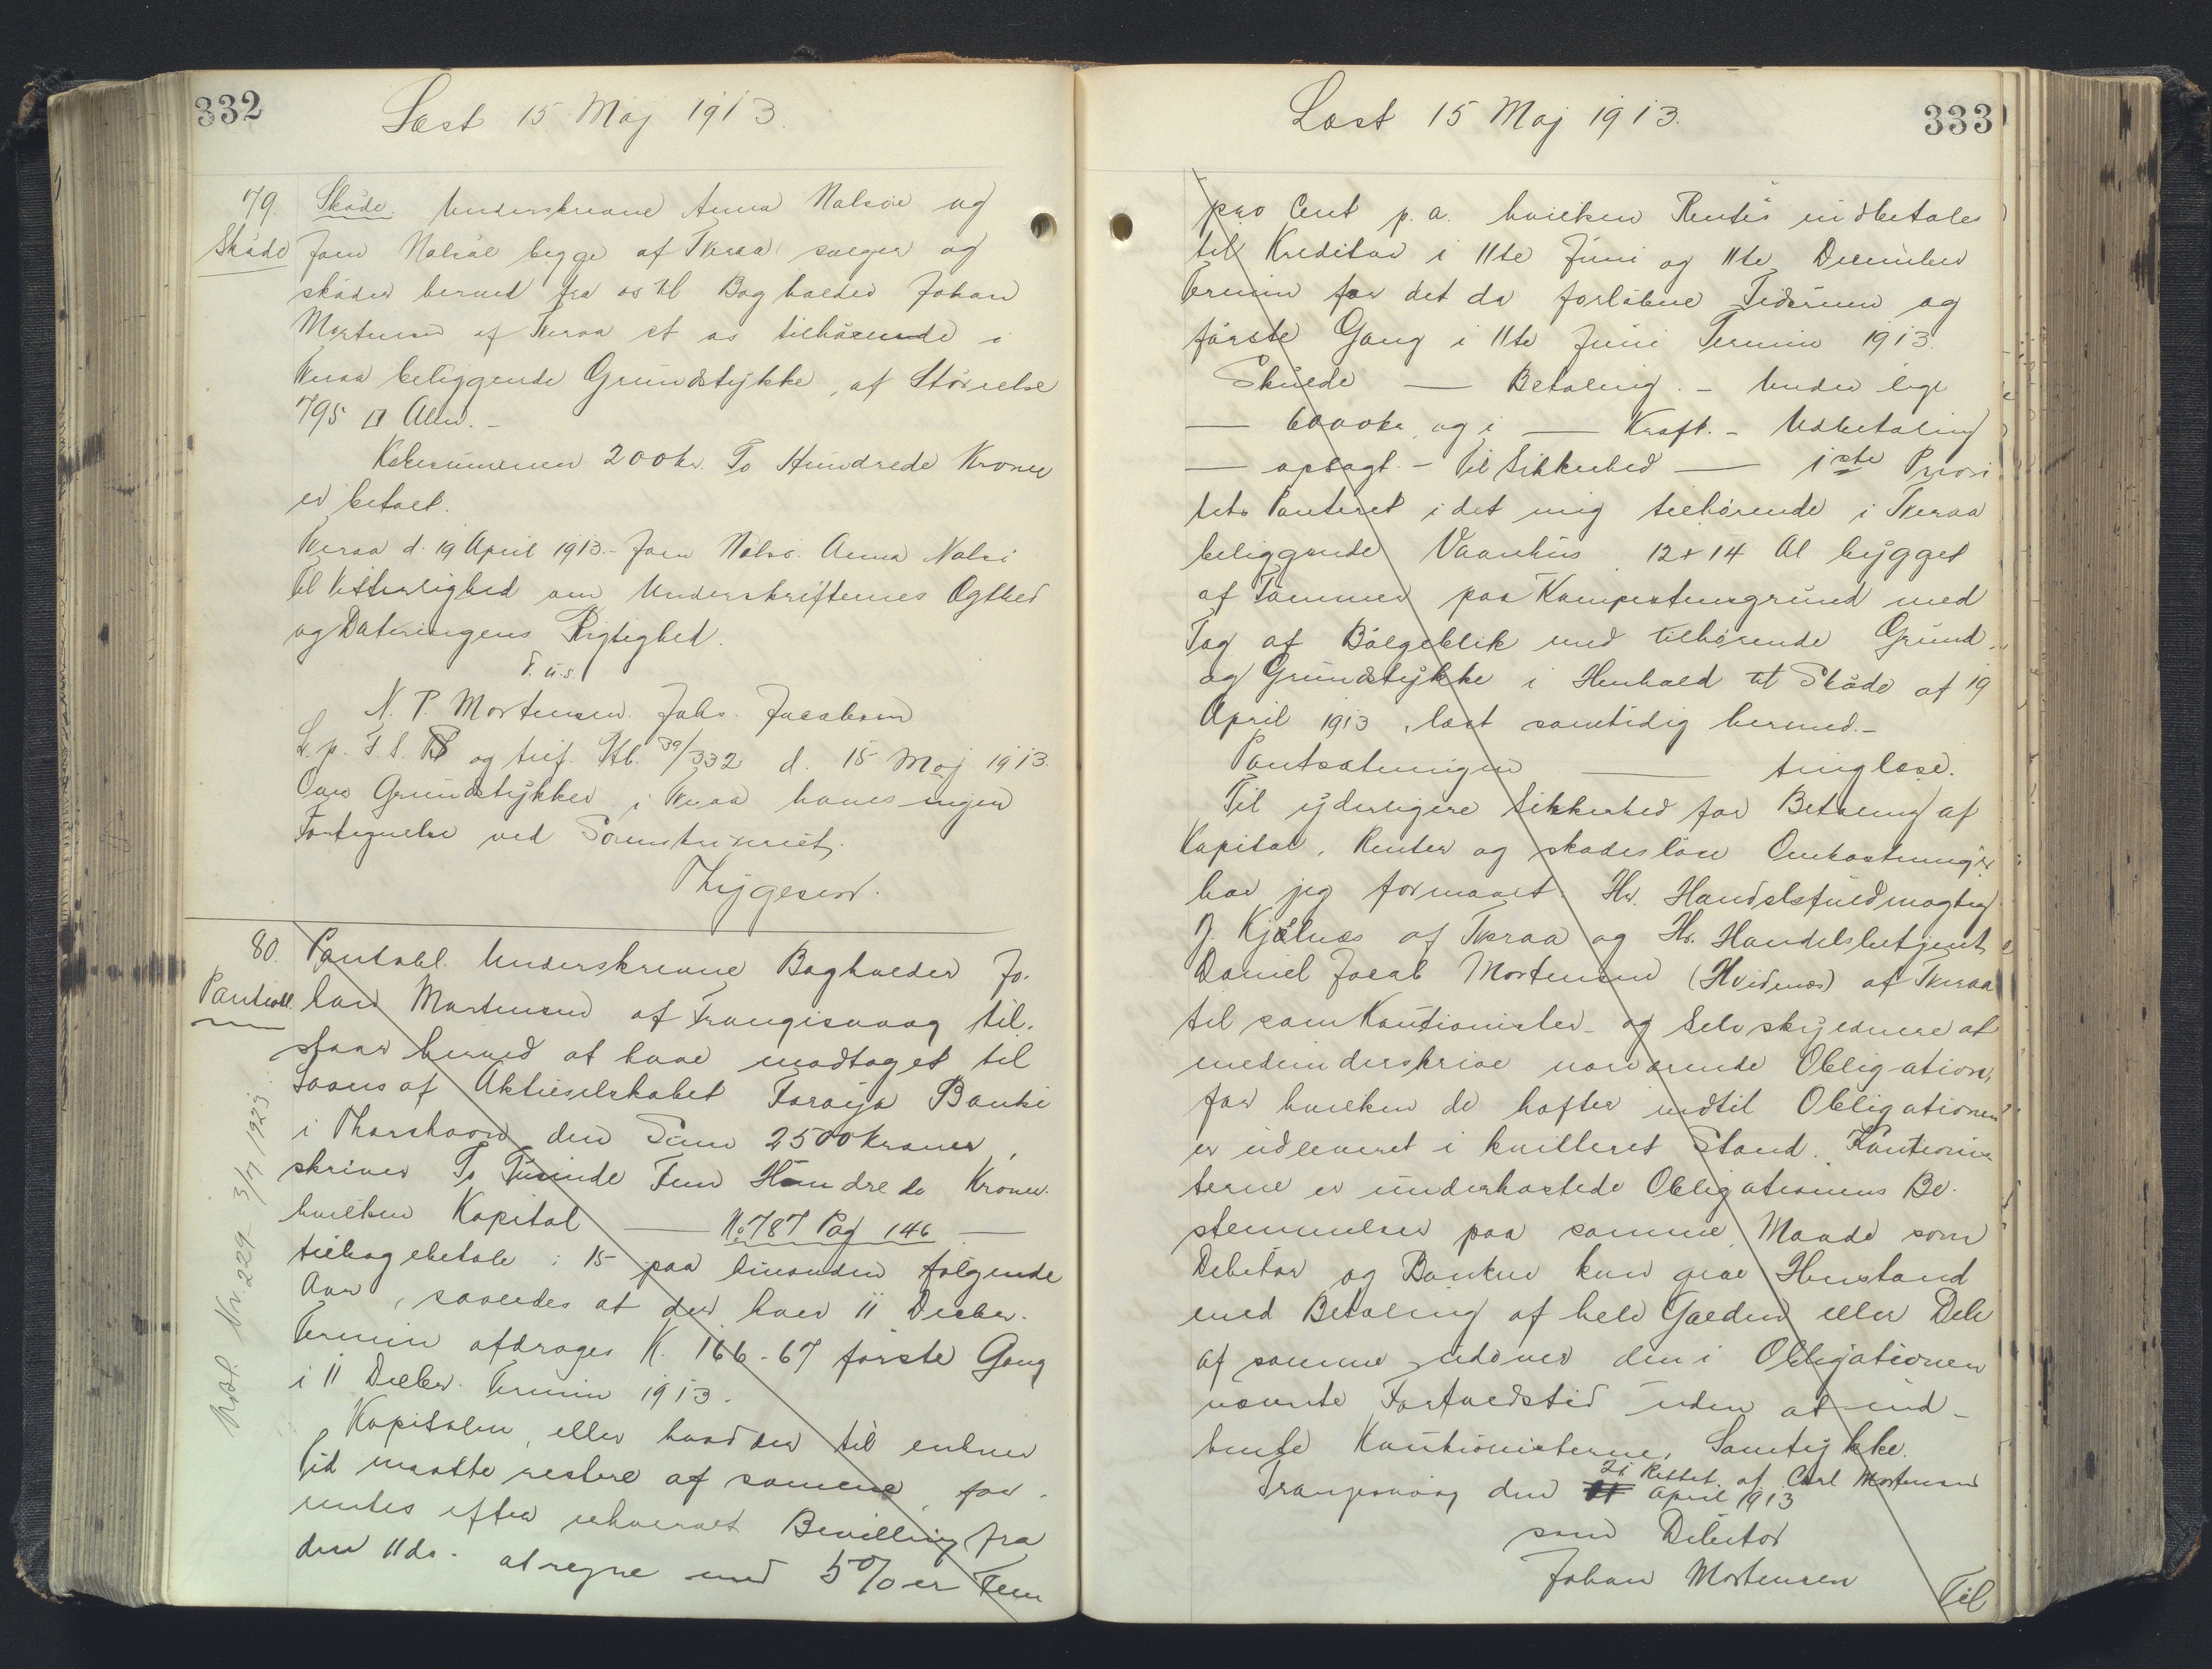 332
Læst 15 Maj 1913.
79. Skøde. Underskrevne Anna Nolsøe og
Skøde Joen Nolsøe begge af Tveraa sælger og
skøder herved fra os til Bogholder Johan
Mortensen af Tveraa et os tilhørende i
Tveraa beliggende Grundstykke, af Størrelse
795 □ Alen. -
Købesummen 200 kr. To Hundrede Kroner
er betalt.
Tveraa d. 19 April 1913. - Joen Nolsø. Anna Nolsø
Til Vitterlighed om Underskrifternes Ægthed
og Dateringens Rigtighed.
T. u. s.
N. P. Mortensen. Johs. Jacobsen
L. p. T. S. og tilf. Ptb. 39/332 d. 15 Maj 1913.
Over Grundstykker i Tveraa haves ingen
Fortegnelse ved Sorenskriveriet.
Thygesen.
80. Pantobl. Underskrevne Bogholder Jo-
Pantobl. han Mortensen af Trangisvaag til-
staar herved at have modtaget til
Laans af Aktieselskabet Førøja Banki
i Thorshavn den Sum 2500 Kroner,
skriver To Tusinde Fem Hundrede Kroner
hvilken Kapital — No 787 Pag 146 —
tilbagebetale i 15 paa hinanden følgende
Aar, saaledes at der hver 11 Decbr.
Termin afdrages K. 166-67 første Gang
i 11 Decbr. Termin 1913.
Kapitalen, eller hvad der til enhver
Tid maatte restere af samme, for-
rentes efter erhvervet Bevilling fra
den 11 ds. at regne med 5% er Fem
Udsl. Nr. 229 3/7 1923.
333
Læst 15 Maj 1913.
pro Cent p. a. hvilken Rente indbetales
til Kreditor i 11te Juni og 11te December
Termin for det da forløbne Tidsrum og
første Gang i 11te Juni Termin 1913.
Skulde — Betaling. - Under lige
— 6000 kr. og i — Kraft. - Udbetaling
— opsagt. - Til Sikkerhed — 1ste Priori
tets Panteret i det mig tilhørende i Tveraa
beliggende Vaanhus 12 x 14 Al bygget
af Tømmer paa Kampestensgrund med
Tag af Bølgeblik med tilhørende Grund-
og Grundstykke i Henhold til Skøde af 19
April 1913, læst samtidig hermed. -
Pantsætningen — tinglæse.
Til yderligere Sikkerhed for Betaling af
Kapital, Renter og skadesløse Omkostninger
har jeg formaaet Hr. Handelsfuldmægtig
J. Kjølnæs af Tveraa og Hr. Handelsbetjent
Daniel Jacob Mortensen (Hvidenæs) af Tveraa
til som Kautionister - og Selvskyldnere at
medunderskrive nærværende Obligation,
for hvilken de hæfter indtil Obligationen
er udleveret i kvitteret Stand. Kautionis
terne er underkastede Obligationens Be-
stemmelser paa samme Maade som
Debitor og Banken kan give Henstand
med Betaling af hele Gælden eller Dele
af samme udover den i Obligationen
nævnte Forfaldstid uden at ind-
hente Kautionisterne, Samtykke.
21 Rettet af Carl Mortensen
Trangisvaag den 11 April 1913
som Debitor
Johan Mortensen
Til